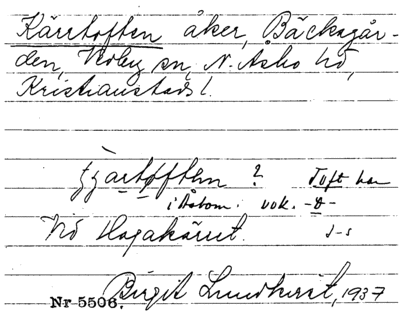 Kärrtoften åker, Bäckagår-
den, Verby sn, N. Åsbo hd,
Kristianstads l.
tjártoftén ? Toft har
i Åsbom. vok. -ɒ-
Vid Hagakärret. J-s
Birgit Lundkvist, 1937
Nr 5506.